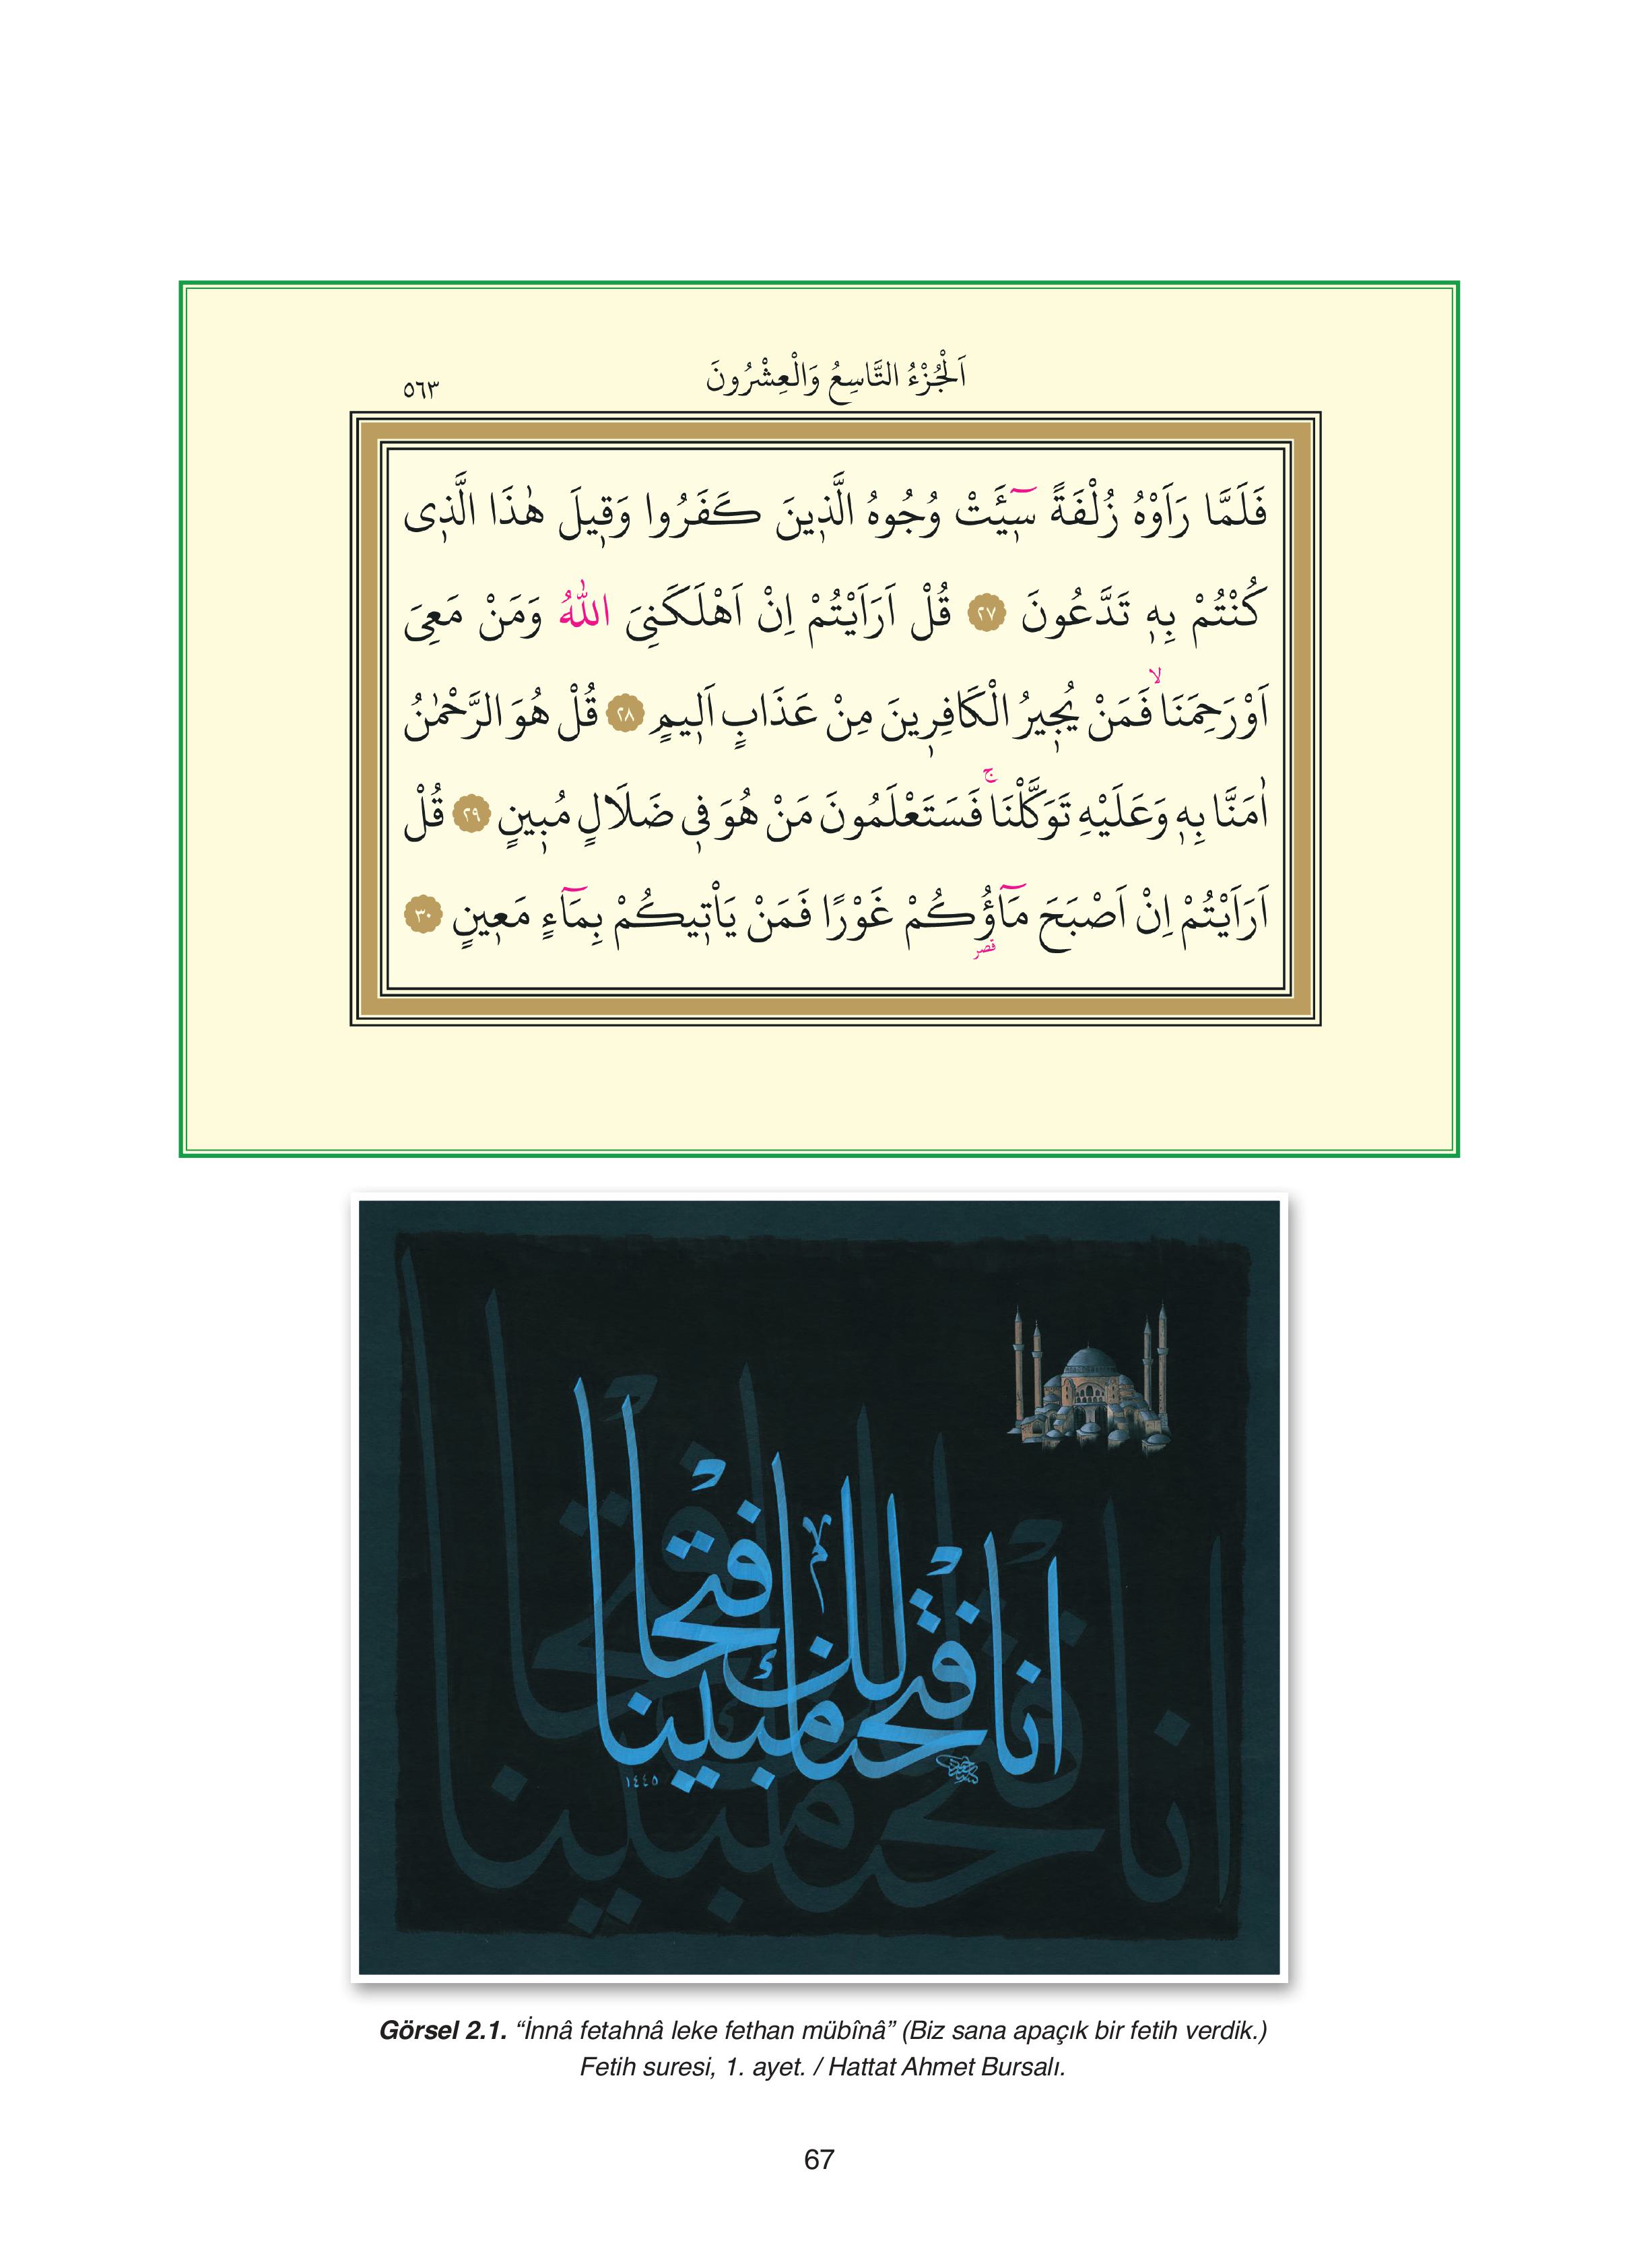 اَلْجُزْءُ التَّاسِعُ وَالْعِشْرُونَ
٥٦٣
فَلَمَّا رَاَوْهُ زُلْفَةً سٓيـَٔتْ وُجُوهُ الَّذ۪ينَ كَفَرُوا وَق۪يلَ هٰذَا الَّذ۪ى
كُنْتُمْ بِه۪ تَدَّعُونَ ٢٧ قُلْ اَرَاَيْتُمْ اِنْ اَهْلَكَنِىَ اللّٰهُ وَمَنْ مَعِىَ
اَوْرَحِمَنَاۙ فَمَنْ يُج۪يرُ الْكَافِر۪ينَ مِنْ عَذَابٍ اَل۪يمٍ ٢٨ قُلْ هُوَ الرَّحْمٰنُ
اٰمَنَّا بِه۪ وَعَلَيْهِ تَوَكَّلْنَاۚ فَسَتَعْلَمُونَ مَنْ هُوَ ف۪ى ضَلَالٍ مُب۪ينٍ ٢٩ قُلْ
اَرَاَيْتُمْ اِنْ اَصْبَحَ مَٓاؤُ۬كُمْ غَوْرًا فَمَنْ يَاْت۪يكُمْ بِمَٓاءٍ مَع۪ينٍ ٣٠
قصر
انا فتحنا لك فتحا مبينا
١٤٤٥
Görsel 2.1. “İnnâ fetahnâ leke fethan mübînâ” (Biz sana apaçık bir fetih verdik.)
Fetih suresi, 1. ayet. / Hattat Ahmet Bursalı.
67